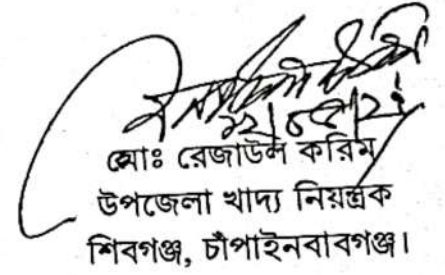 মোঃ রেজাউল করিম
উপজেলা খাদ্য নিয়ন্ত্রক
শিবগঞ্জ, চাঁপাইনবাবগঞ্জ।